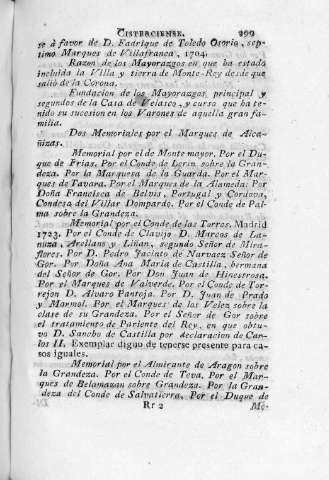 CISTERCIENSE. 299
se à favor de D. Fadrique de Toledo Osorio, sep-
timo Marques de Villafranca, 1704.
Razon de los Mayorazgos en que ha estado
incluida la Villa y tierra de Monte-Rey desde que
salió de la Corona.
Fundacion de los Mayorazgos principal y
segundos de la Casa de Velasco, y curso que ha te-
nido su sucesion en los Varones de aquella gran fa-
milia.
Dos Memoriales por el Marques de Alca-
ñizas.
Memorial por el de Montemayor. Por el Du-
que de Frias. Por el Conde de Lerin sobre la Gran-
deza. Por la Marquesa de la Guarda. Por el Mar-
ques de Tavara. Por el Marques de la Alameda. Por
Doña Francisca de Belvis, Portugal y Cordova,
Condesa del Villar Dompardo. Por el Conde de Pal-
ma sobre la Grandeza.
Memorial por el Conde de las Torres. Madrid
1723. Por el Conde de Clavijo D. Marcos de La-
nuza, Arellano y Liñan, segundo Señor de Mira-
flores. Por D. Pedro Jacinto de Narvaez Señor de
Gor. Por Doña Ana Maria de Castilla, hermana
del Señor de Gor. Por Don Juan de Hinestrosa.
Por el Marques de Valverde. Por el Conde de Tor-
rejon D. Alvaro Pantoja. Por D. Juan de Prado
y Marmol. Por el Marques de los Velez sobre la
clase de su Grandeza. Por el Señor de Gor sobre
el tratamiento de Pariente del Rey, en que obtu-
vo D. Sancho de Castilla por declaracion de Car-
los II. Exemplar digno de tenerse presente para ca-
sos iguales.
Memorial por el Almirante de Aragon sobre
la Grandeza. Por el Conde de Teva. Por el Mar-
ques de Belamazan sobre Grandeza. Por la Gran-
deza del Conde de Salvatierra. Por el Duque de
Rr 2 Me-